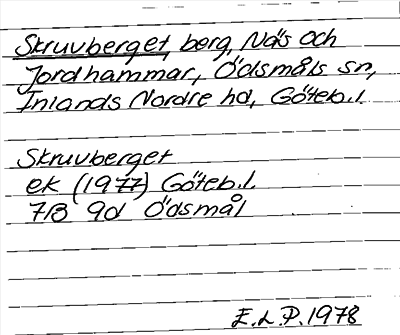 Skruvberget, berg, Näs och
Jordhammar, Ödsmåls sn,
Inlands Nordre hd, Göteb.l.
Skruvberget
ek (1977) Göteb.l.
7B 9d Ödsmål
E.L.P. 1978